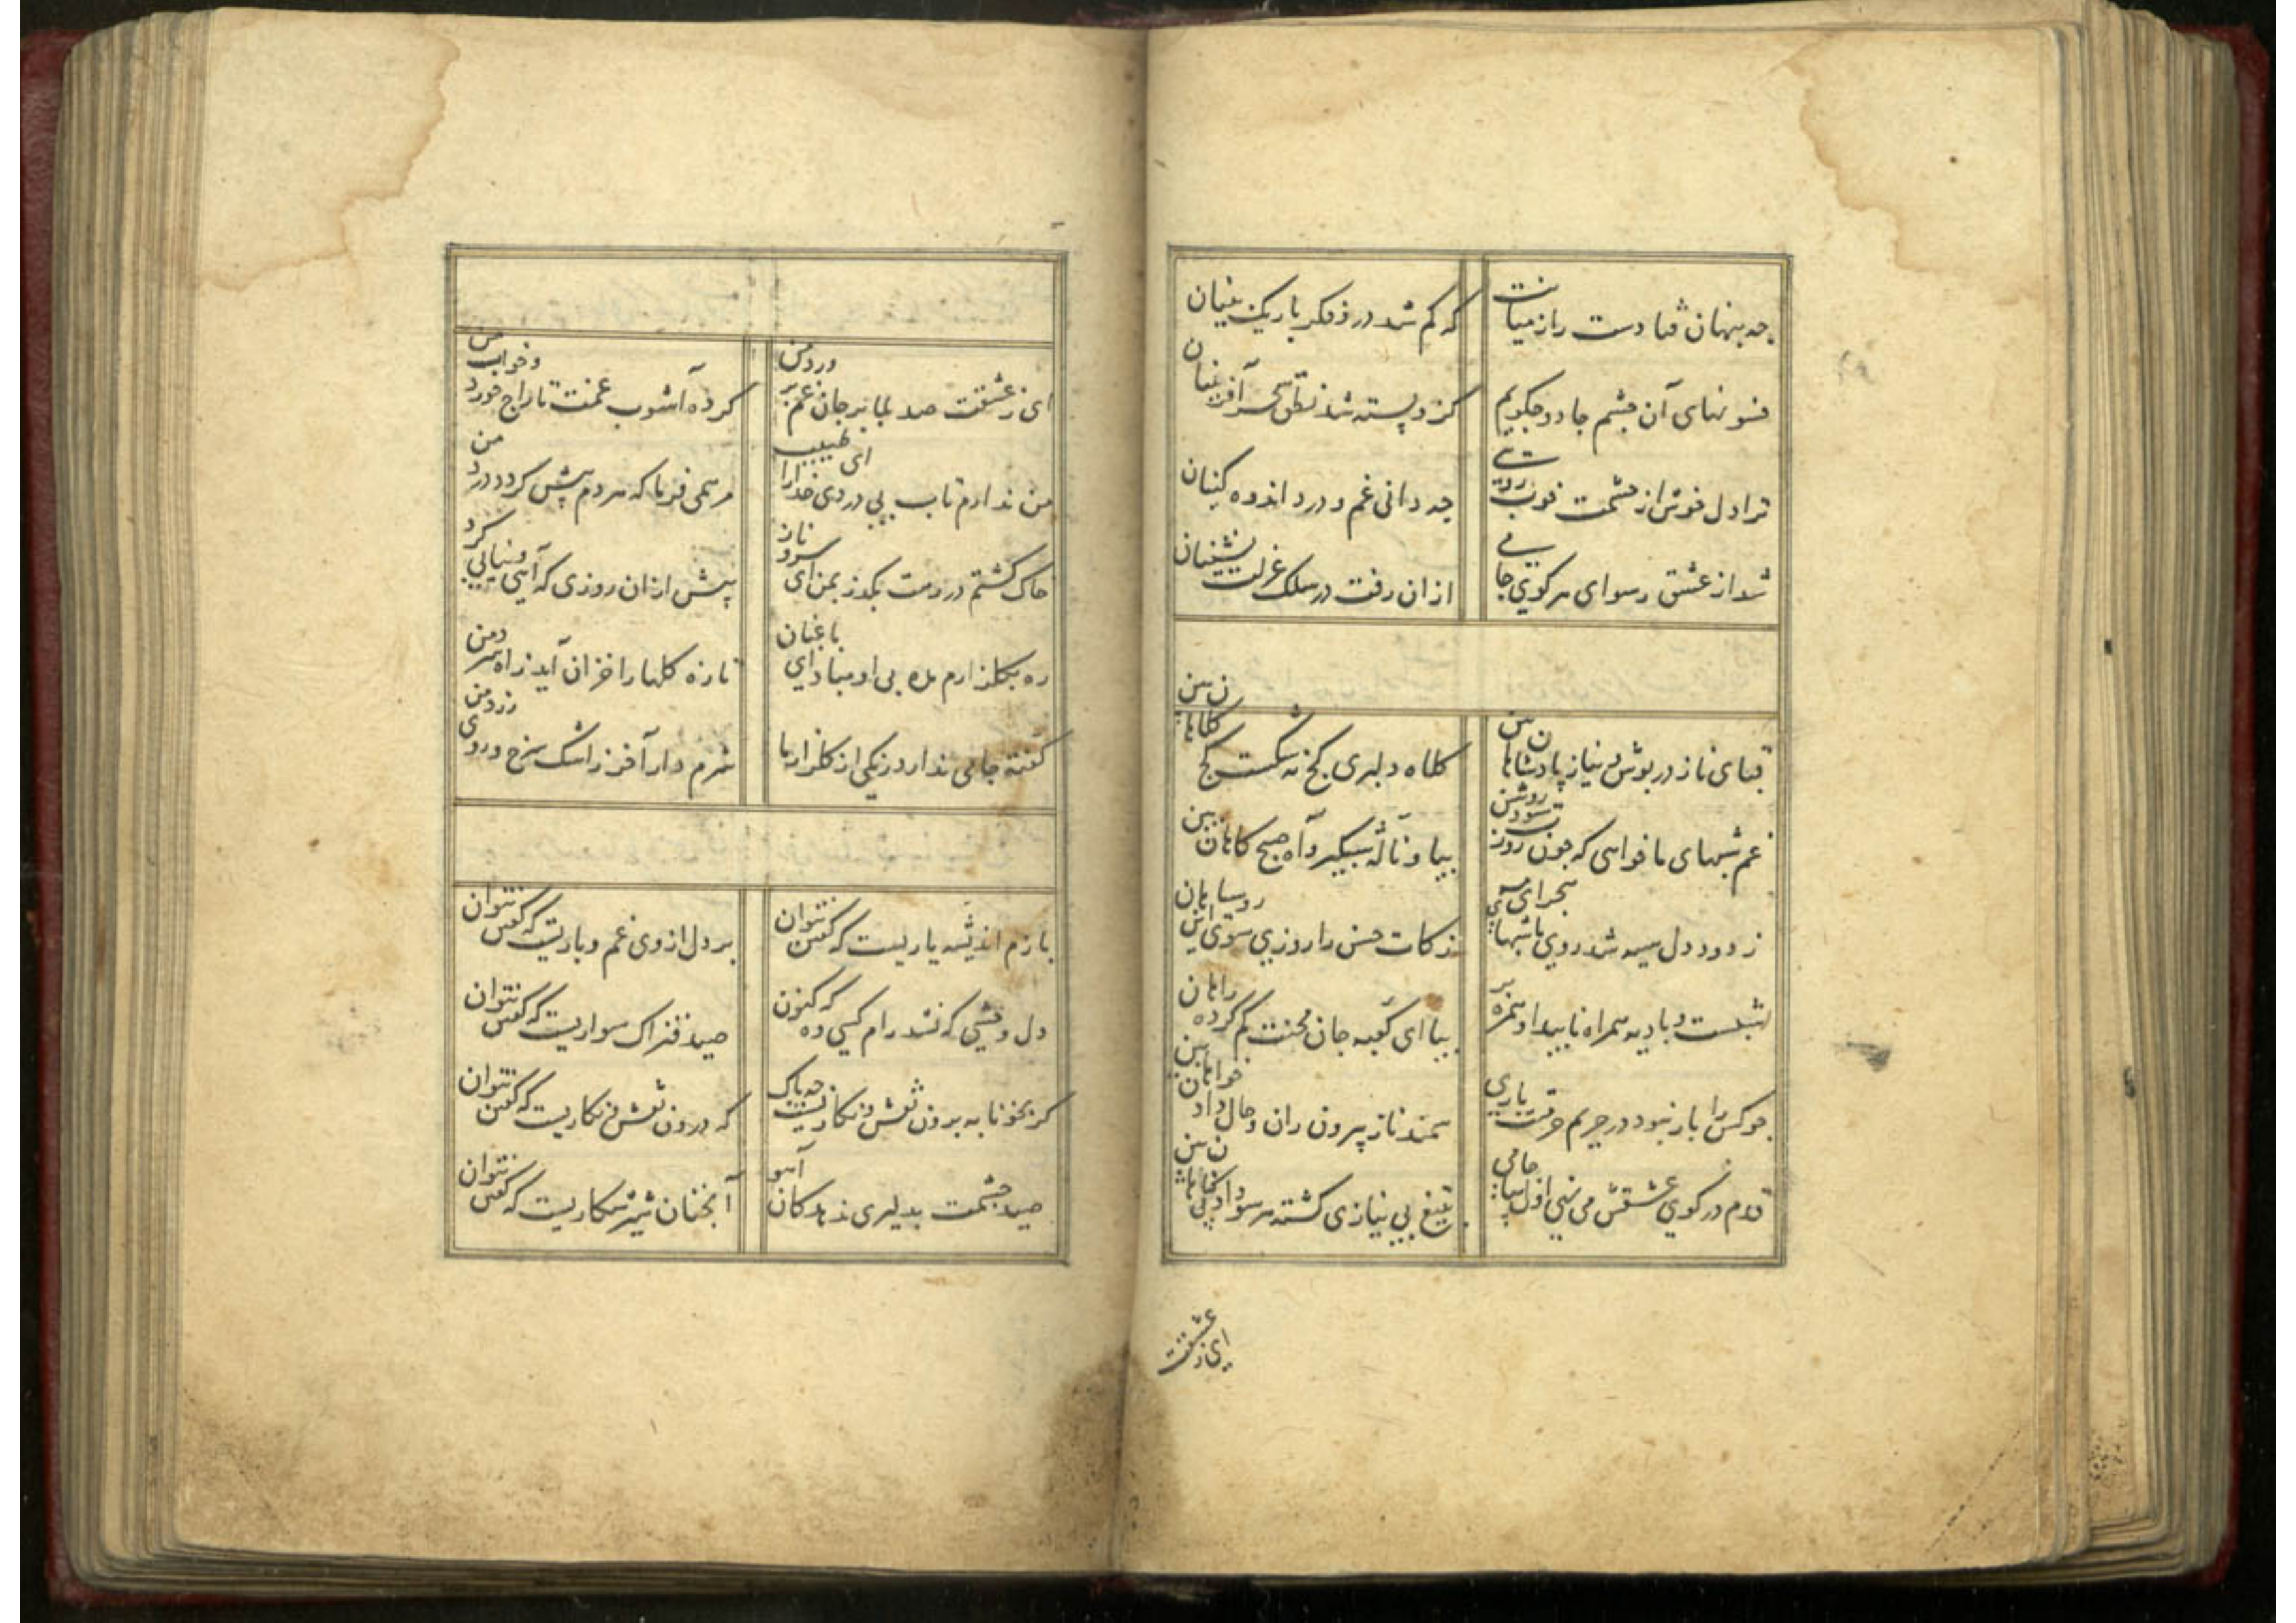 چه پنهان فتادست راز میانت
که کم شد درو فکر باریک بینان
فسونهای آن چشم جادو چگویم
کزو بسته شد نطق سحر آفرینان
ترا دل خوش از حشمت خوب رویی
چه دانی غم و درد اندوه کینان
شد از عشق رسوای هر کوی جامی
ازان رفت در سلک عزلت نشینان
قبای ناز در پوش و نیاز پادشاهان بین
کلاه دلبری کج نه شکست کج کلاهان بین
غم شبهای ما خواهی که چون روزت شود روشن
بیا و ناله شبگیر و آه صبح کاهان بین
ز دود دل سیه شد روی ما شبهای هجر ای مه
زکات حسن را روزی سوی این روسیاهان بین
شبست و بادیه همراه ناپیدا و همره بر
بیا ای کعبه جان محنت کم کرده راهان بین
چو کس را بار نبود در حریم حرمتت باری
سمند ناز بیرون ران و حال داد خواهان بین
قدم در کوی عشقش می نهی اول بیا جامی
بتیغ بی نیازی کشته هر سو بی کناهان بین
ای ز عشقت
ای ز عشقت صد بلا بر جان غم پرورد من
کرده آشوب غمت تاراج خورد و خواب من
من ندارم تاب بی دردی خدا را ای طبیب
مرهمی فرما که هر دم بیش کردد درد من
خاک کشتم در رهت بکذر بمن ای سرو ناز
پیش ازان روزی که آیی و نیابی کرد من
ره بکلزارم مده بی او مباد ای باغبان
تازه کلها را خزان آید ز آه سرد من
کفته جامی ندارد رنکی از کلزار ما
شرم دار آخر ز اشک سرخ و روی زرد من
بازم اندیشه یاریست که کفتن نتوان
بر دل از وی غم و باریست که کفتن نتوان
دل وحشی که نشد رام کسی وه که کنون
صید فتراک سواریست که کفتن نتوان
کر بخونابه برون نقش و نکاریست چه باک
که درون نقش و نکاریست که کفتن نتوان
صید چشمت بدلیری نه بد کان آهو
آنچنان شیر شکاریست که کفتن نتوان